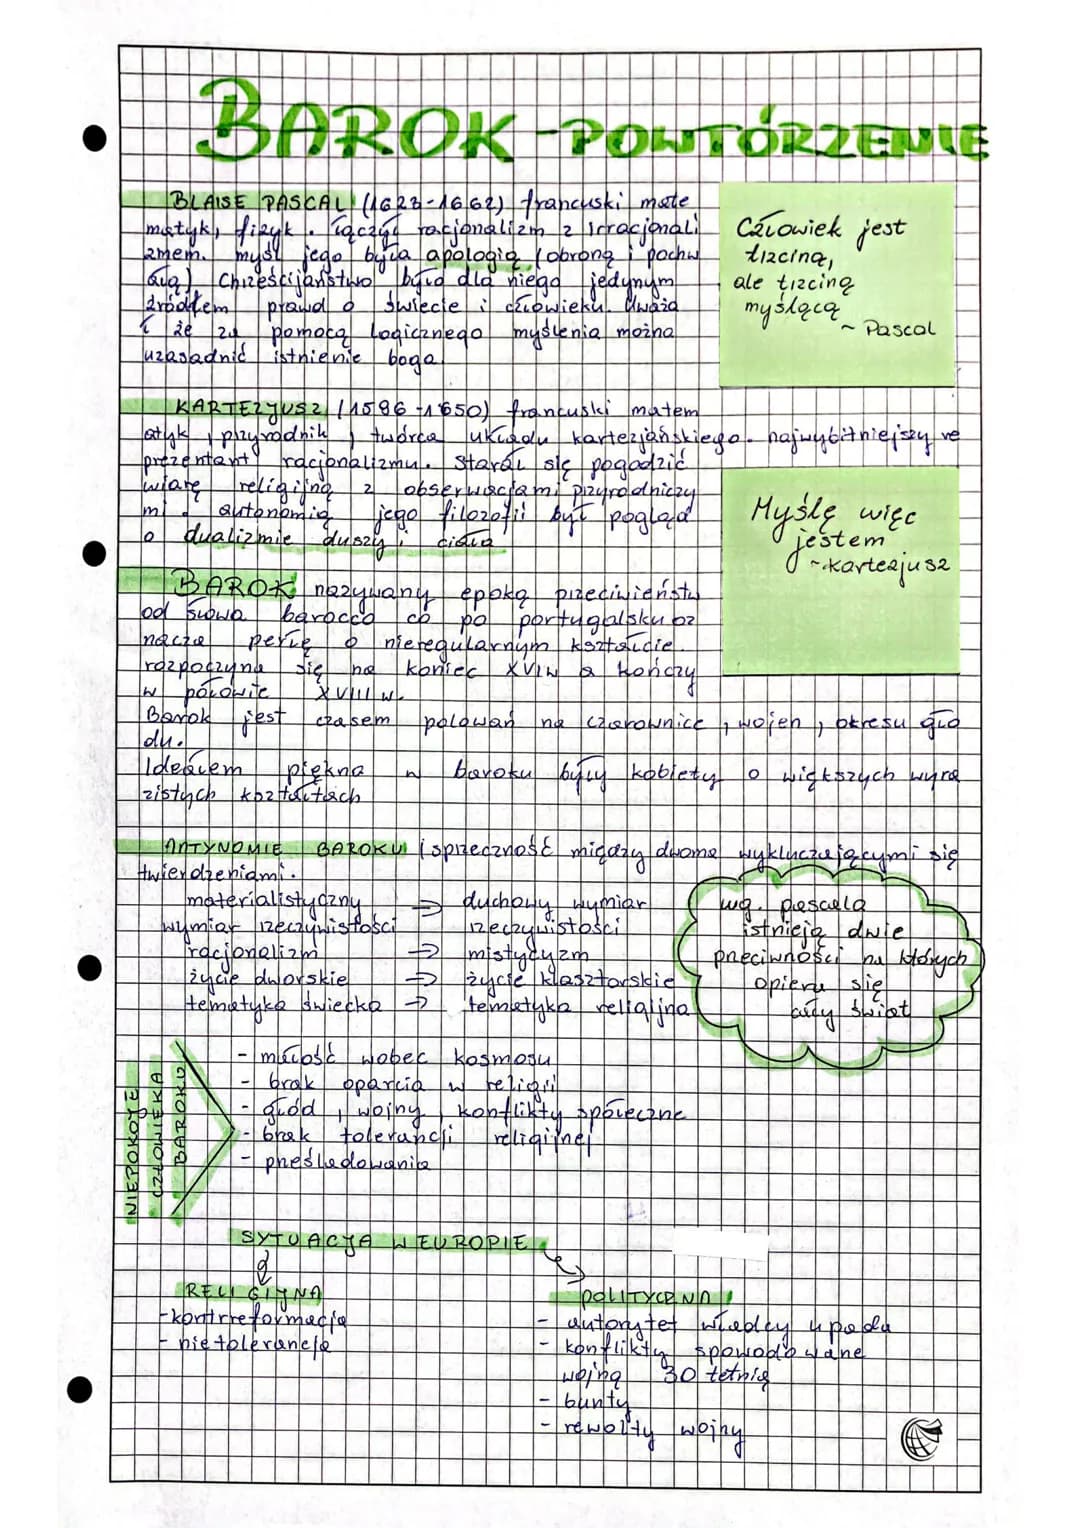 BAROK - POWTÓRZENIE
BLAISE PASCAL (1623-1662) francuski mate
matyk, fizyk. łączył racjonalizm z irracjonali
zmem. myśl jego była apologią (obroną i pochw
ałą) Chrześcijaństwo było dla niego jedynym
źródłem prawd o świecie i człowieku. Uważa
ł że za pomocą logicznego myślenia można
uzasadnić istnienie boga.
Człowiek jest
trzciną,
ale trzciną
myślącą
~ Pascal
KARTEZJUSZ (1596-1650) francuski matem
atyk, przyrodnik, twórca układu kartezjańskiego. najwybitniejszy re
prezentant racjonalizmu. Starał się pogodzić
wiarę religijną z obserwacjami przyrodniczy
mi. autonomią jego filozofii był pogląd
o dualizmie duszy i ciała
Myślę więc
jestem
~kartezjusz
BAROK nazywany epoką przeciwieństw
od słowa barocco co po portugalsku oz
nacza perłę o nieregularnym kształcie.
rozpoczyna się na koniec XVI w a kończy
w połowie XVIII w.
Barok jest czasem polowań na czarownice, wojen, okresu gło
du.
Ideałem piękna w baroku były kobiety o większych wyra
zistych kształtach
ANTYNOMIE BAROKU (sprzeczność między dwoma wykluczającymi się
twierdzeniami.
materialistyczny → duchowy wymiar
wymiar rzeczywistości rzeczywistości
racjonalizm → mistycyzm
życie dworskie → życie klasztorskie
tematyka świecka → tematyka religijna
wg. pascala
istnieją dwie
przeciwności na których
opiera się
cały świat
NIEPOKOJE
CZŁOWIEKA
BAROKU
- małość wobec kosmosu
- brak oparcia w religii
- głód, wojny, konflikty społeczne
- brak tolerancji religijnej
- prześladowania
SYTUACJA W EUROPIE
RELIGIJNA
- kontrreformacja
- nietolerancja
POLITYCZNA
- autorytet władcy upada
- konflikty spowodowane
wojną 30 letnią
- bunty
- rewolty wojny